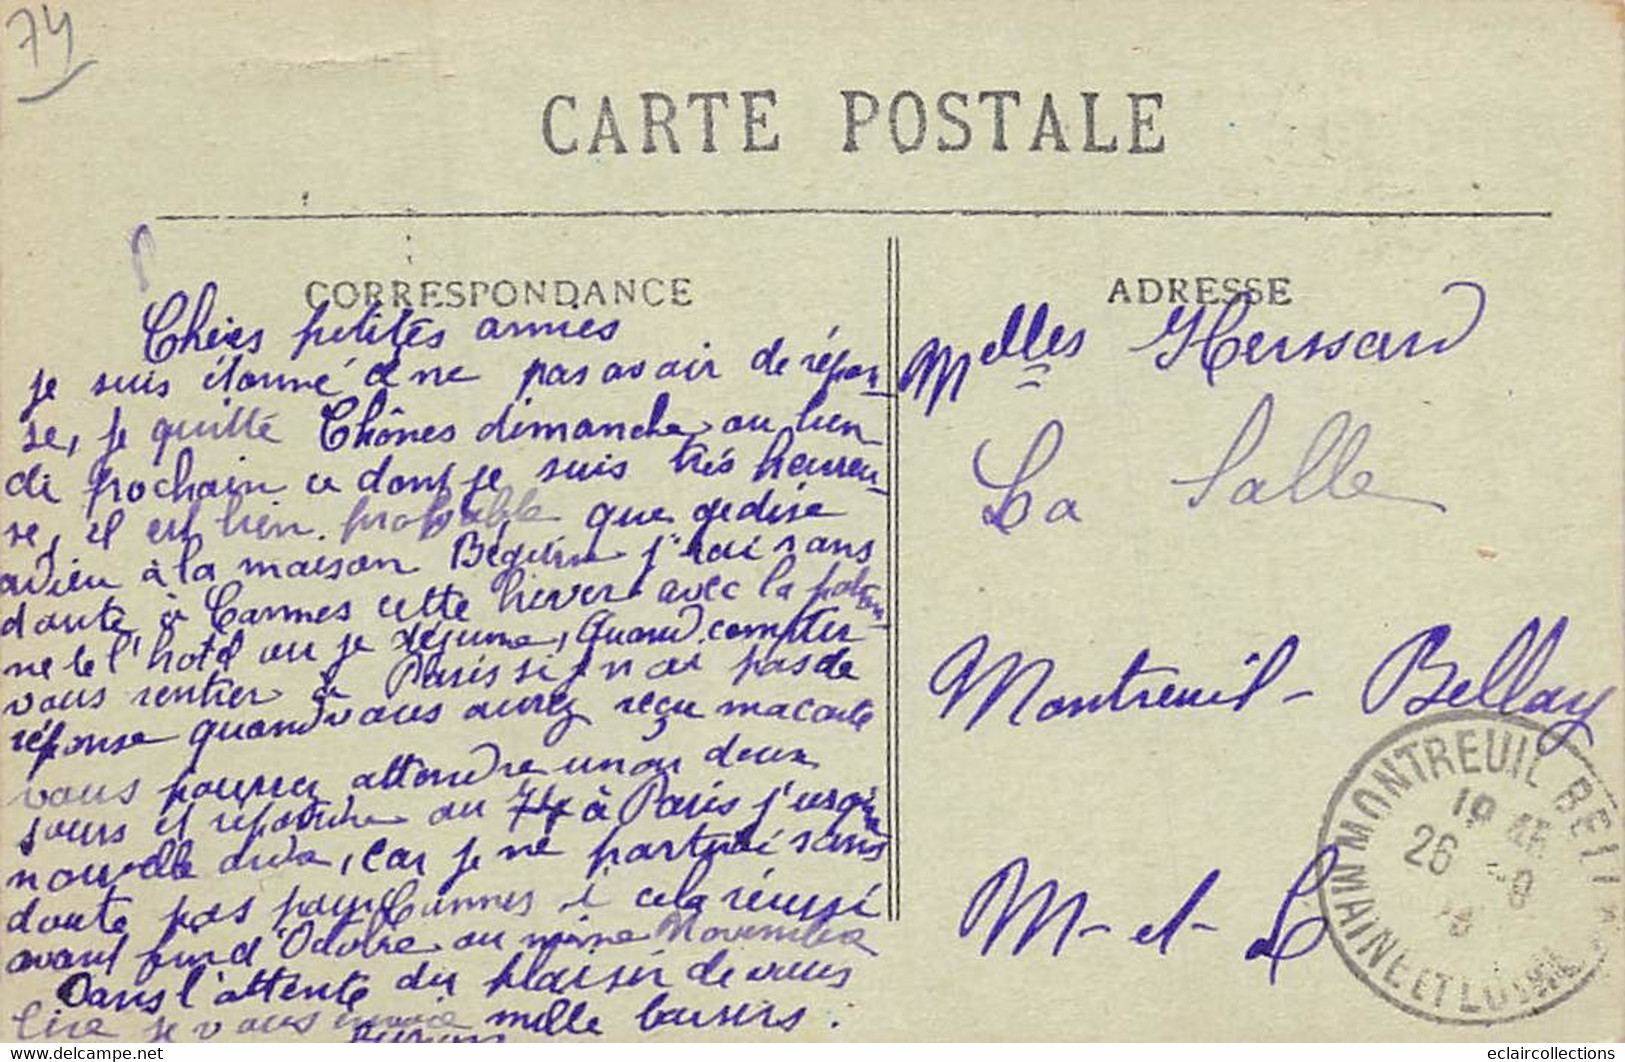 74
CARTE POSTALE
CORRESPONDANCE
Chères petites amies
je suis étonné d ne pas avoir de répon-
se, je quitte Thônes dimanche ou lun
di prochain ce dont je suis très heureu-
se, il est bien probable que je dise
adieu à la maison j'irai sans
doute à Cannes cette hiver avec la patron-
ne de l'hotel ou je déjeune, Quand compter
vous rentrer à Paris si je n ai pas de
réponse quand vous aurez reçu ma carte
vous pourrez attendre un ou deux
jours et répondre au 74 à Paris j'usqu'à
nouvelle avis, Car je ne partirai sans
doute pas pour Cannes si cela réussi
avant fin d'Octobre ou même Novembre
Dans l'attente du plaisir de vous
lire je vous envoie mille baisers.
ADRESSE
Melles Herssard
La Salle
Montreuil-Bellay
M-et-L
MONTREUIL BELLAY
26
MAINE ET LOIRE
www.delcampe.net
eclaircollections